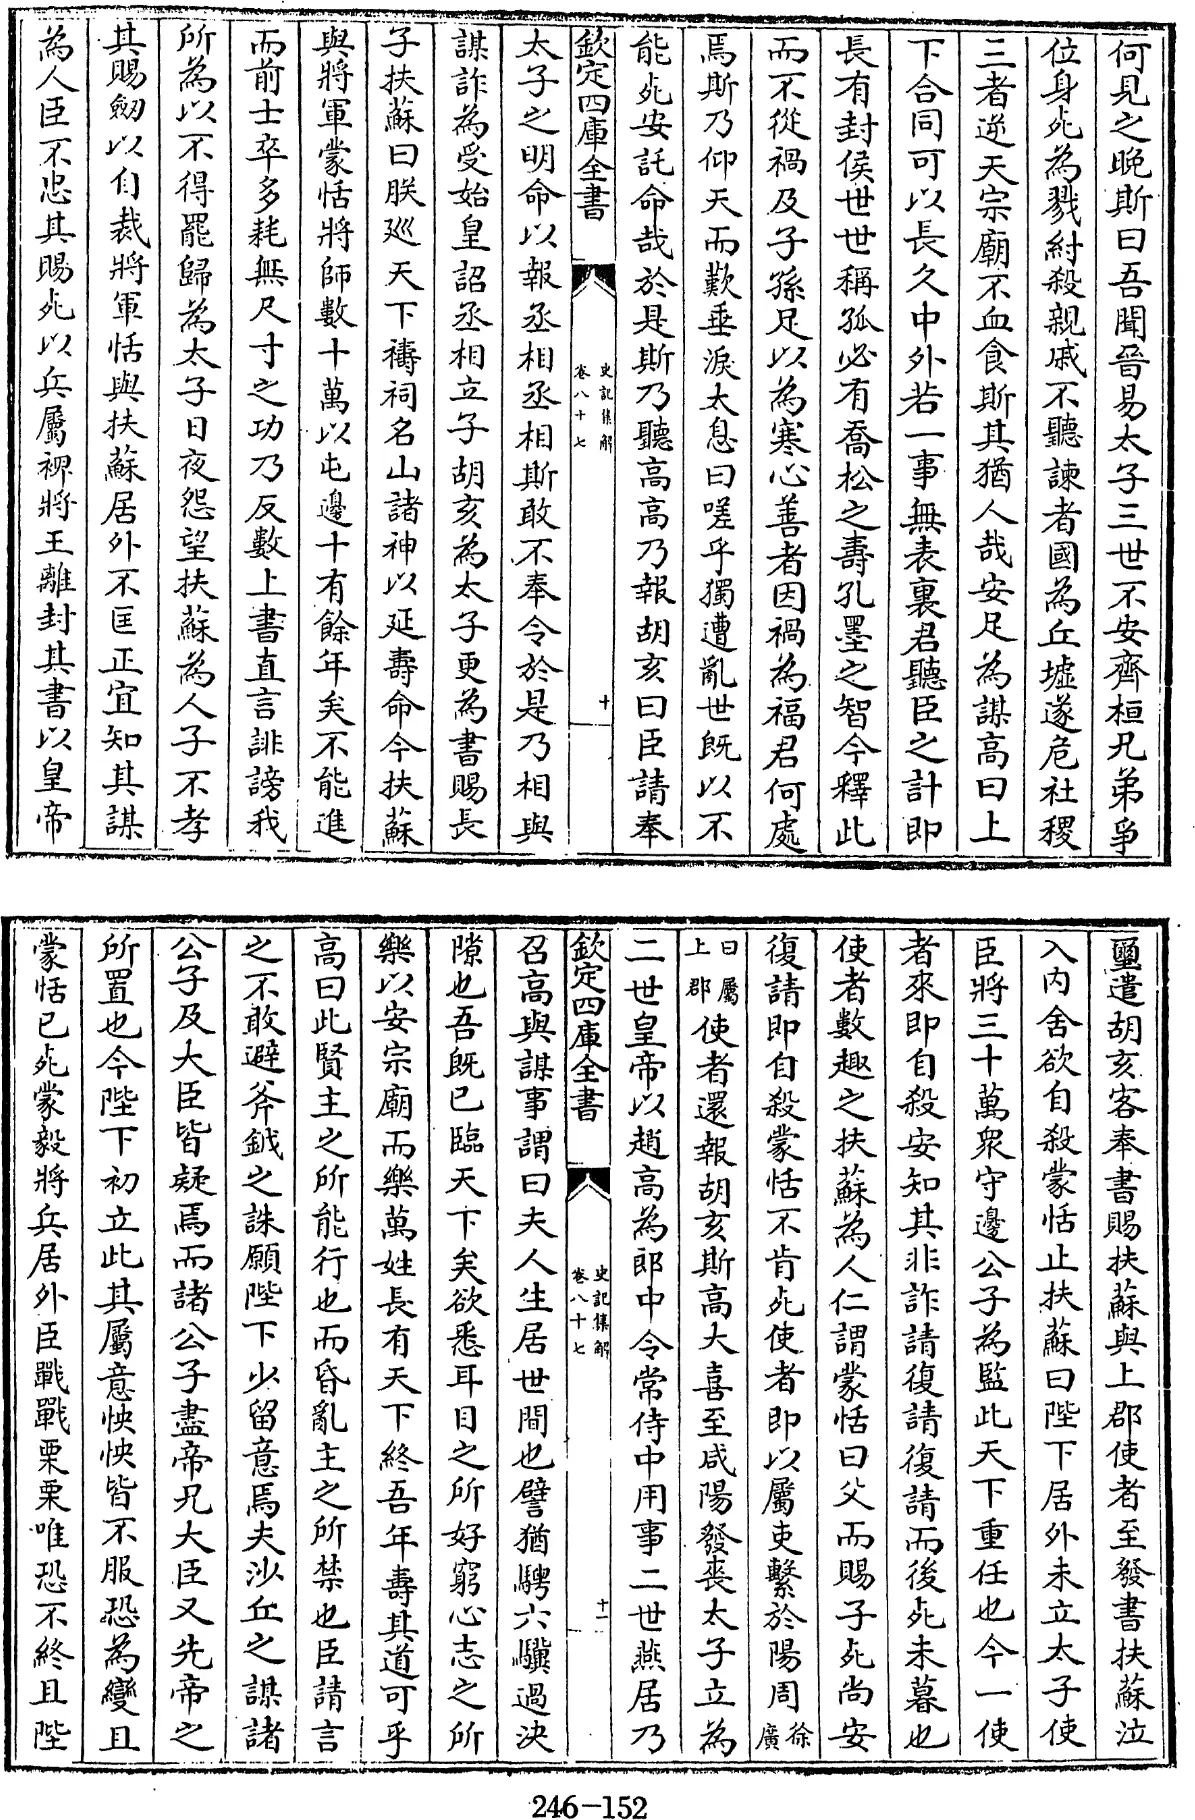 何見之晚斯曰吾聞晉易太子三世不安齊桓兄弟爭
位身死為戮紂殺親戚不聽諫者國為丘墟遂危社稷
三者逆天宗廟不血食斯其猶人哉安足為謀高曰上
下合同可以長久中外若一事無表裏君聽臣之計即
長有封侯世世稱孤必有喬松之壽孔墨之智今釋此
而不從禍及子孫足以為寒心善者因禍為福君何處
焉斯乃仰天而歎垂淚太息曰嗟乎獨遭亂世既以不
能死安託命哉於是斯乃聽高高乃報胡亥曰臣請奉
欽定四庫全書
史記集解
卷八十七
十
太子之明命以報丞相丞相斯敢不奉令於是乃相與
謀詐為受始皇詔丞相立子胡亥為太子更為書賜長
子扶蘇曰朕廵天下禱祠名山諸神以延壽命今扶蘇
與將軍蒙恬將師數十萬以屯邊十有餘年矣不能進
而前士卒多耗無尺寸之功乃反數上書直言誹謗我
所為以不得罷歸為太子日夜怨望扶蘇為人子不孝
其賜劒以自裁將軍恬與扶蘇居外不匡正宜知其謀
為人臣不忠其賜死以兵屬裨將王離封其書以皇帝
璽遣胡亥客奉書賜扶蘇與上郡使者至發書扶蘇泣
入內舍欲自殺蒙恬止扶蘇曰陛下居外未立太子使
臣將三十萬衆守邊公子為監此天下重任也今一使
者來即自殺安知其非詐請復請復請而後死未暮也
使者數趣之扶蘇為人仁謂蒙恬曰父而賜子死尚安
復請即自殺蒙恬不肯死使者即以屬吏繫於陽周徐廣
曰屬上郡使者還報胡亥斯高大喜至咸陽發喪太子立為
二世皇帝以趙高為郎中令常侍中用事二世燕居乃
欽定四庫全書
史記集解
卷八十七
十一
召高與謀事謂曰夫人生居世間也譬猶騁六驥過決
隙也吾既已臨天下矣欲悉耳目之所好窮心志之所
樂以安宗廟而樂萬姓長有天下終吾年壽其道可乎
高曰此賢主之所能行也而昏亂主之所禁也臣請言
之不敢避斧鉞之誅願陛下少留意焉夫沙丘之謀諸
公子及大臣皆疑焉而諸公子盡帝兄大臣又先帝之
所置也今陛下初立此其屬意怏怏皆不服恐為變且
蒙恬已死蒙毅將兵居外臣戰戰栗栗唯恐不終且陛
246-152